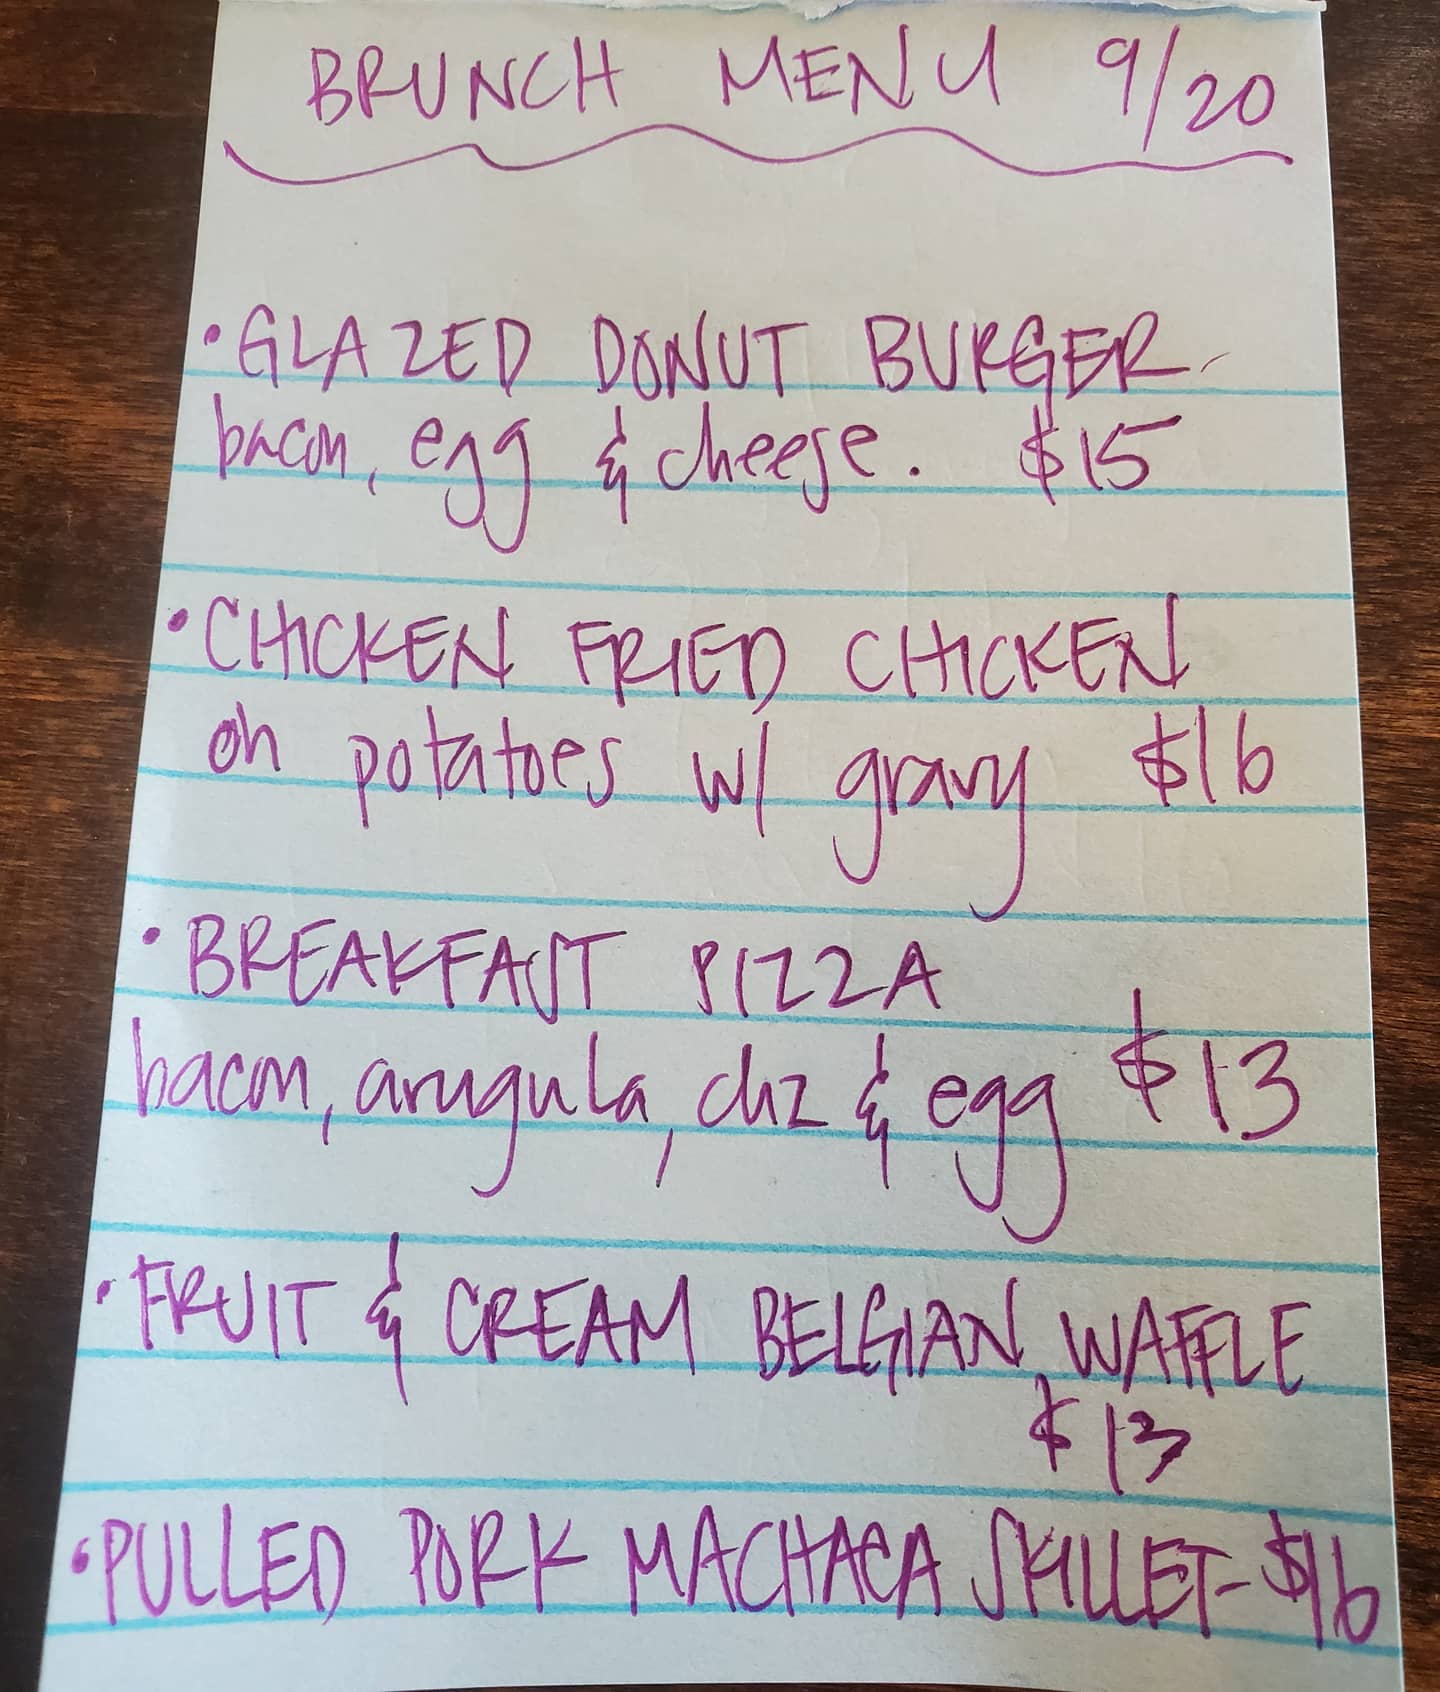 BRUNCH MENU 9/20
• GLAZED DONUT BURGER -
bacon, egg & cheese. $15
• CHICKEN FRIED CHICKEN
on potatoes w/ gravy $16
• BREAKFAST PIZZA
bacon, arugula, chz & egg $13
• FRUIT & CREAM BELGIAN WAFFLE
$13
• PULLED PORK MACHACA SKILLET - $16